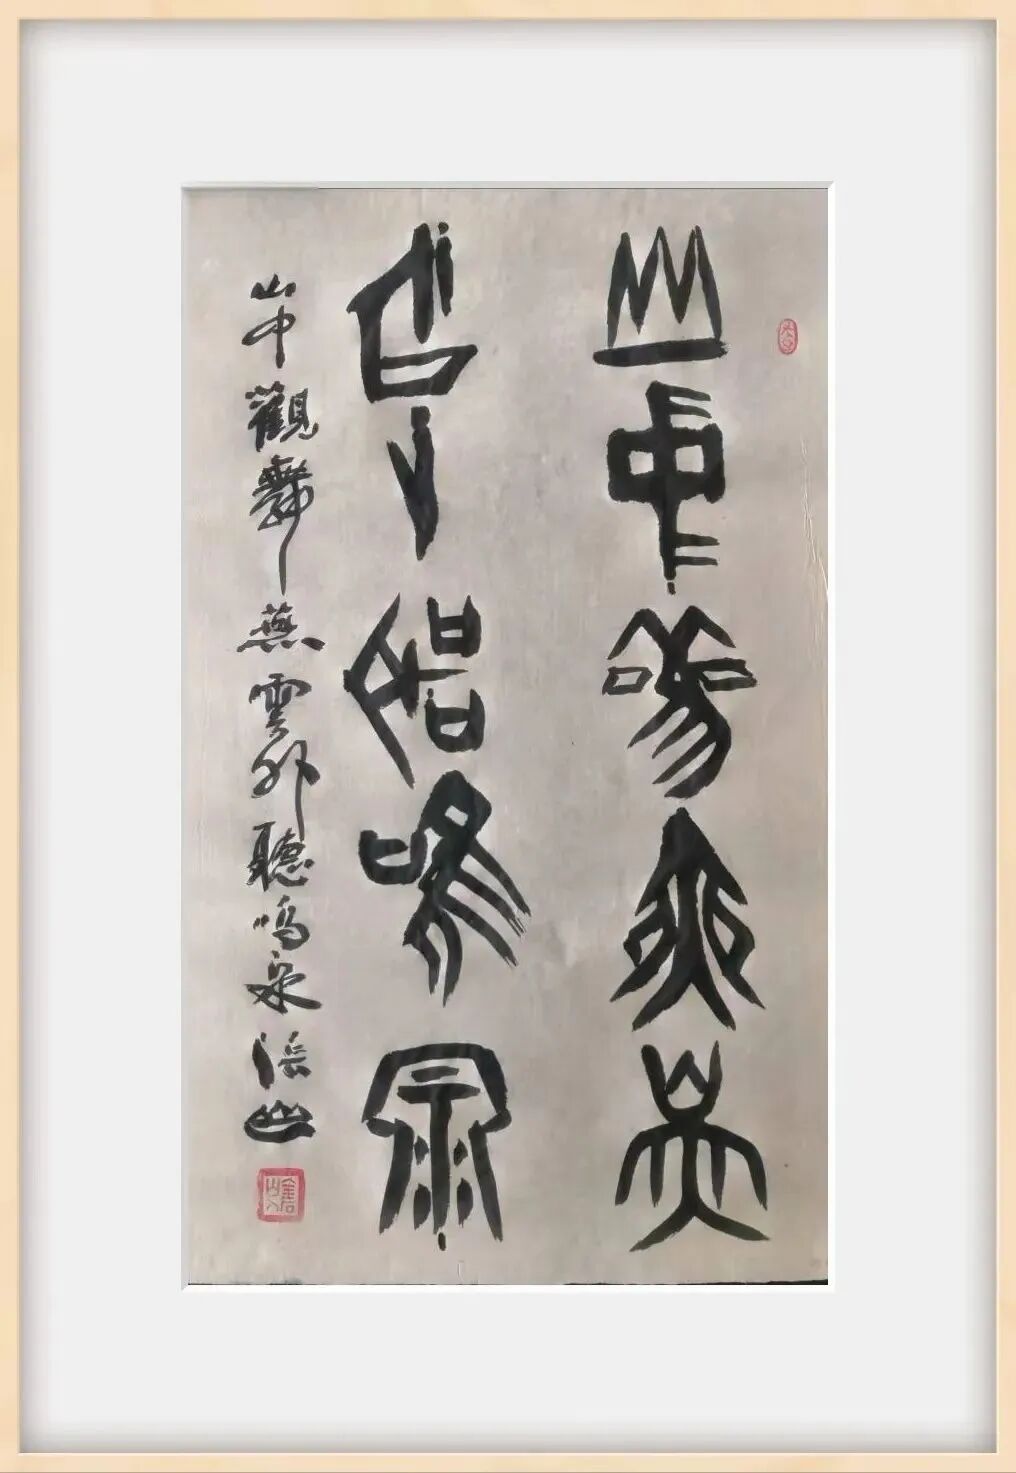 山中觀舞燕
雲外聽鳴泉
山中觀舞燕雲外聽鳴泉山